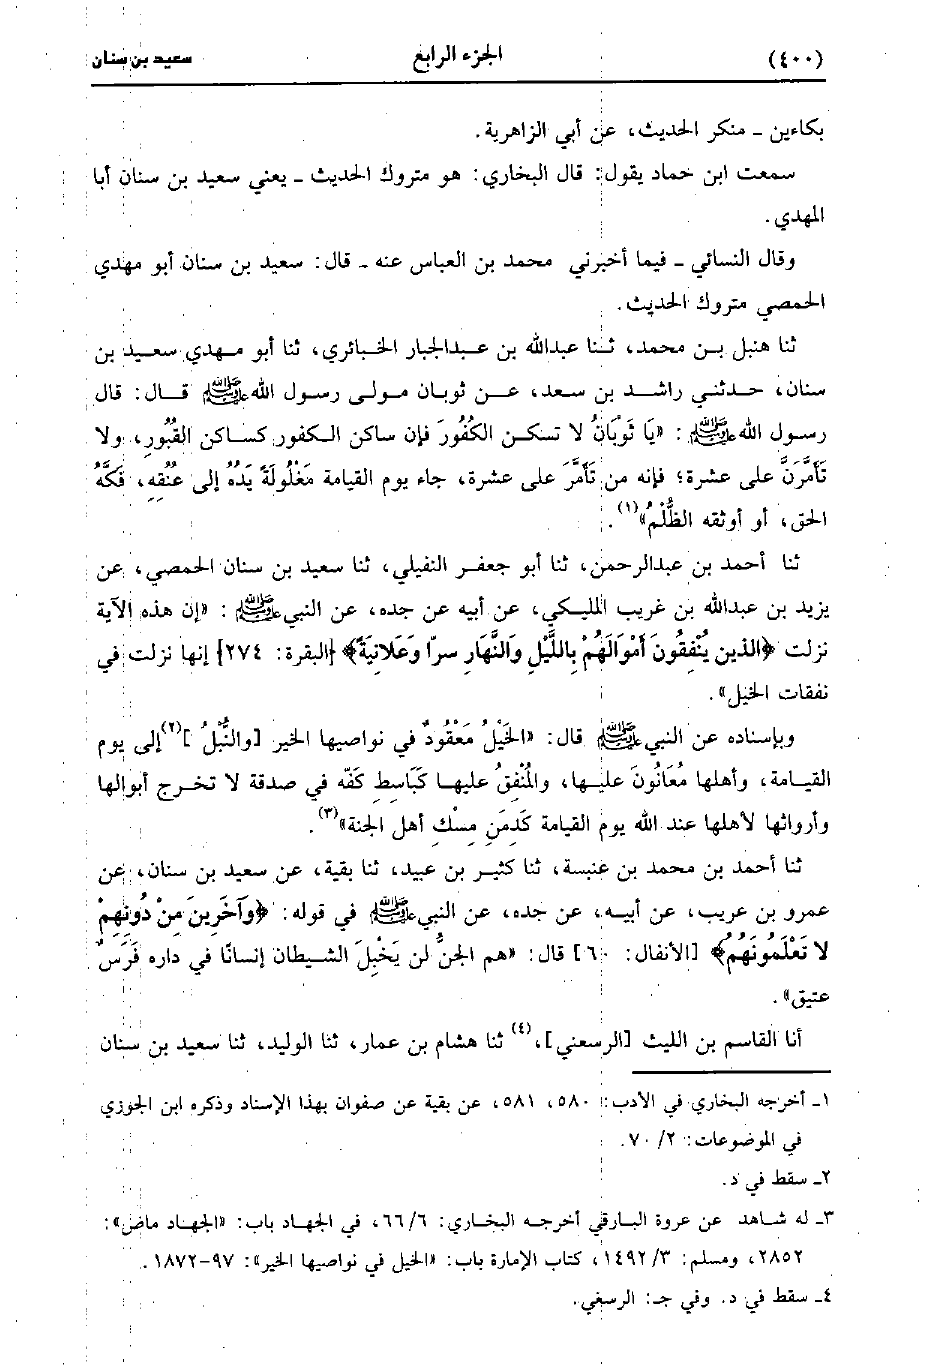 (٤٠٠) الجزء الرابع سعيد بن سنان
بكاءين ـ منكر الحديث، عن أبي الزاهرية.
سمعت ابن حماد يقول: قال البخاري: هو متروك الحديث ـ يعني سعيد بن سنان أبا
المهدي.
وقال النسائي ـ فيما أخبرني محمد بن العباس عنه ـ قال: سعيد بن سنان أبو مهدي
الحمصي متروك الحديث.
ثنا هنبل بن محمد، ثنا عبدالله بن عبدالجبار الخبائري، ثنا أبو مهدي سعيد بن
سنان، حدثني راشد بن سعد، عن ثوبان مولى رسول الله ﷺ قال: قال
رسول الله ﷺ: «يا ثَوْبَانُ لا تسكن الكُفُورَ فإن ساكن الكفور كساكن القُبُورِ، ولا
تَأَمَّرَنَّ على عشرة؛ فإنه من تَأَمَّرَ على عشرة، جاء يوم القيامة مَغْلُولَةً يَدُهُ إلى عنُقهِ، فَكَّهُ
الحق، أو أوثقه الظُّلْمُ»(١).
ثنا أحمد بن عبدالرحمن، ثنا أبو جعفر النفيلي، ثنا سعيد بن سنان الحمصي، عن
يزيد بن عبدالله بن غريب المليكي، عن أبيه عن جده، عن النبي ﷺ: «إن هذه الآية
نزلت ﴿الذين يُنْفِقُونَ أَمْوَالَهُمْ بِاللَّيْلِ وَالنَّهَارِ سرّا وَعَلاَنِيَةً﴾ [البقرة: ٢٧٤] إنها نزلت في
نفقات الخيل».
وبإسناده عن النبي ﷺ قال: «الخَيْلُ مَعْقُودٌ في نواصيها الخير [والنُّبْلُ](٢) إلى يوم
القيامة، وأهلها مُعَانُونَ عليها، والمُنْفِقُ عليها كَبَاسِطِ كَفّه في صدقة لا تخرج أبوالها
وأرواثها لأهلها عند الله يوم القيامة كَدَمَنِ مِسْكِ أهل الجنة»(٣).
ثنا أحمد بن محمد بن عنبسة، ثنا كثير بن عبيد، ثنا بقية، عن سعيد بن سنان، عن
عمرو بن عريب، عن أبيه، عن جده، عن النبي ﷺ في قوله: ﴿وآخَرِينَ مِنْ دُونِهِمْ
لا تَعْلَمُونَهُمُ﴾ [الأنفال: ٦٠] قال: «هم الجنُّ لن يَخْبِلَ الشيطان إنسانًا في داره فَرَسٌ
عتيق».
أنا القاسم بن الليث [الرسعني]،(٤) ثنا هشام بن عمار، ثنا الوليد، ثنا سعيد بن سنان
١ـ أخرجه البخاري في الأدب: ٥٨٠، ٥٨١، عن بقية عن صفوان بهذا الإسناد وذكره ابن الجوزي
في الموضوعات: ٢/ ٧٠.
٢ـ سقط في د.
٣ـ له شاهد عن عروة البارقي أخرجه البخاري: ٦/ ٦٦، في الجهاد باب: «الجهاد ماض»:
٢٨٥٢، ومسلم: ٣/ ١٤٩٢، كتاب الإمارة باب: «الخيل في نواصيها الخير»: ٩٧-١٨٧٢.
٤ـ سقط في د. وفي جـ: الرسغي.